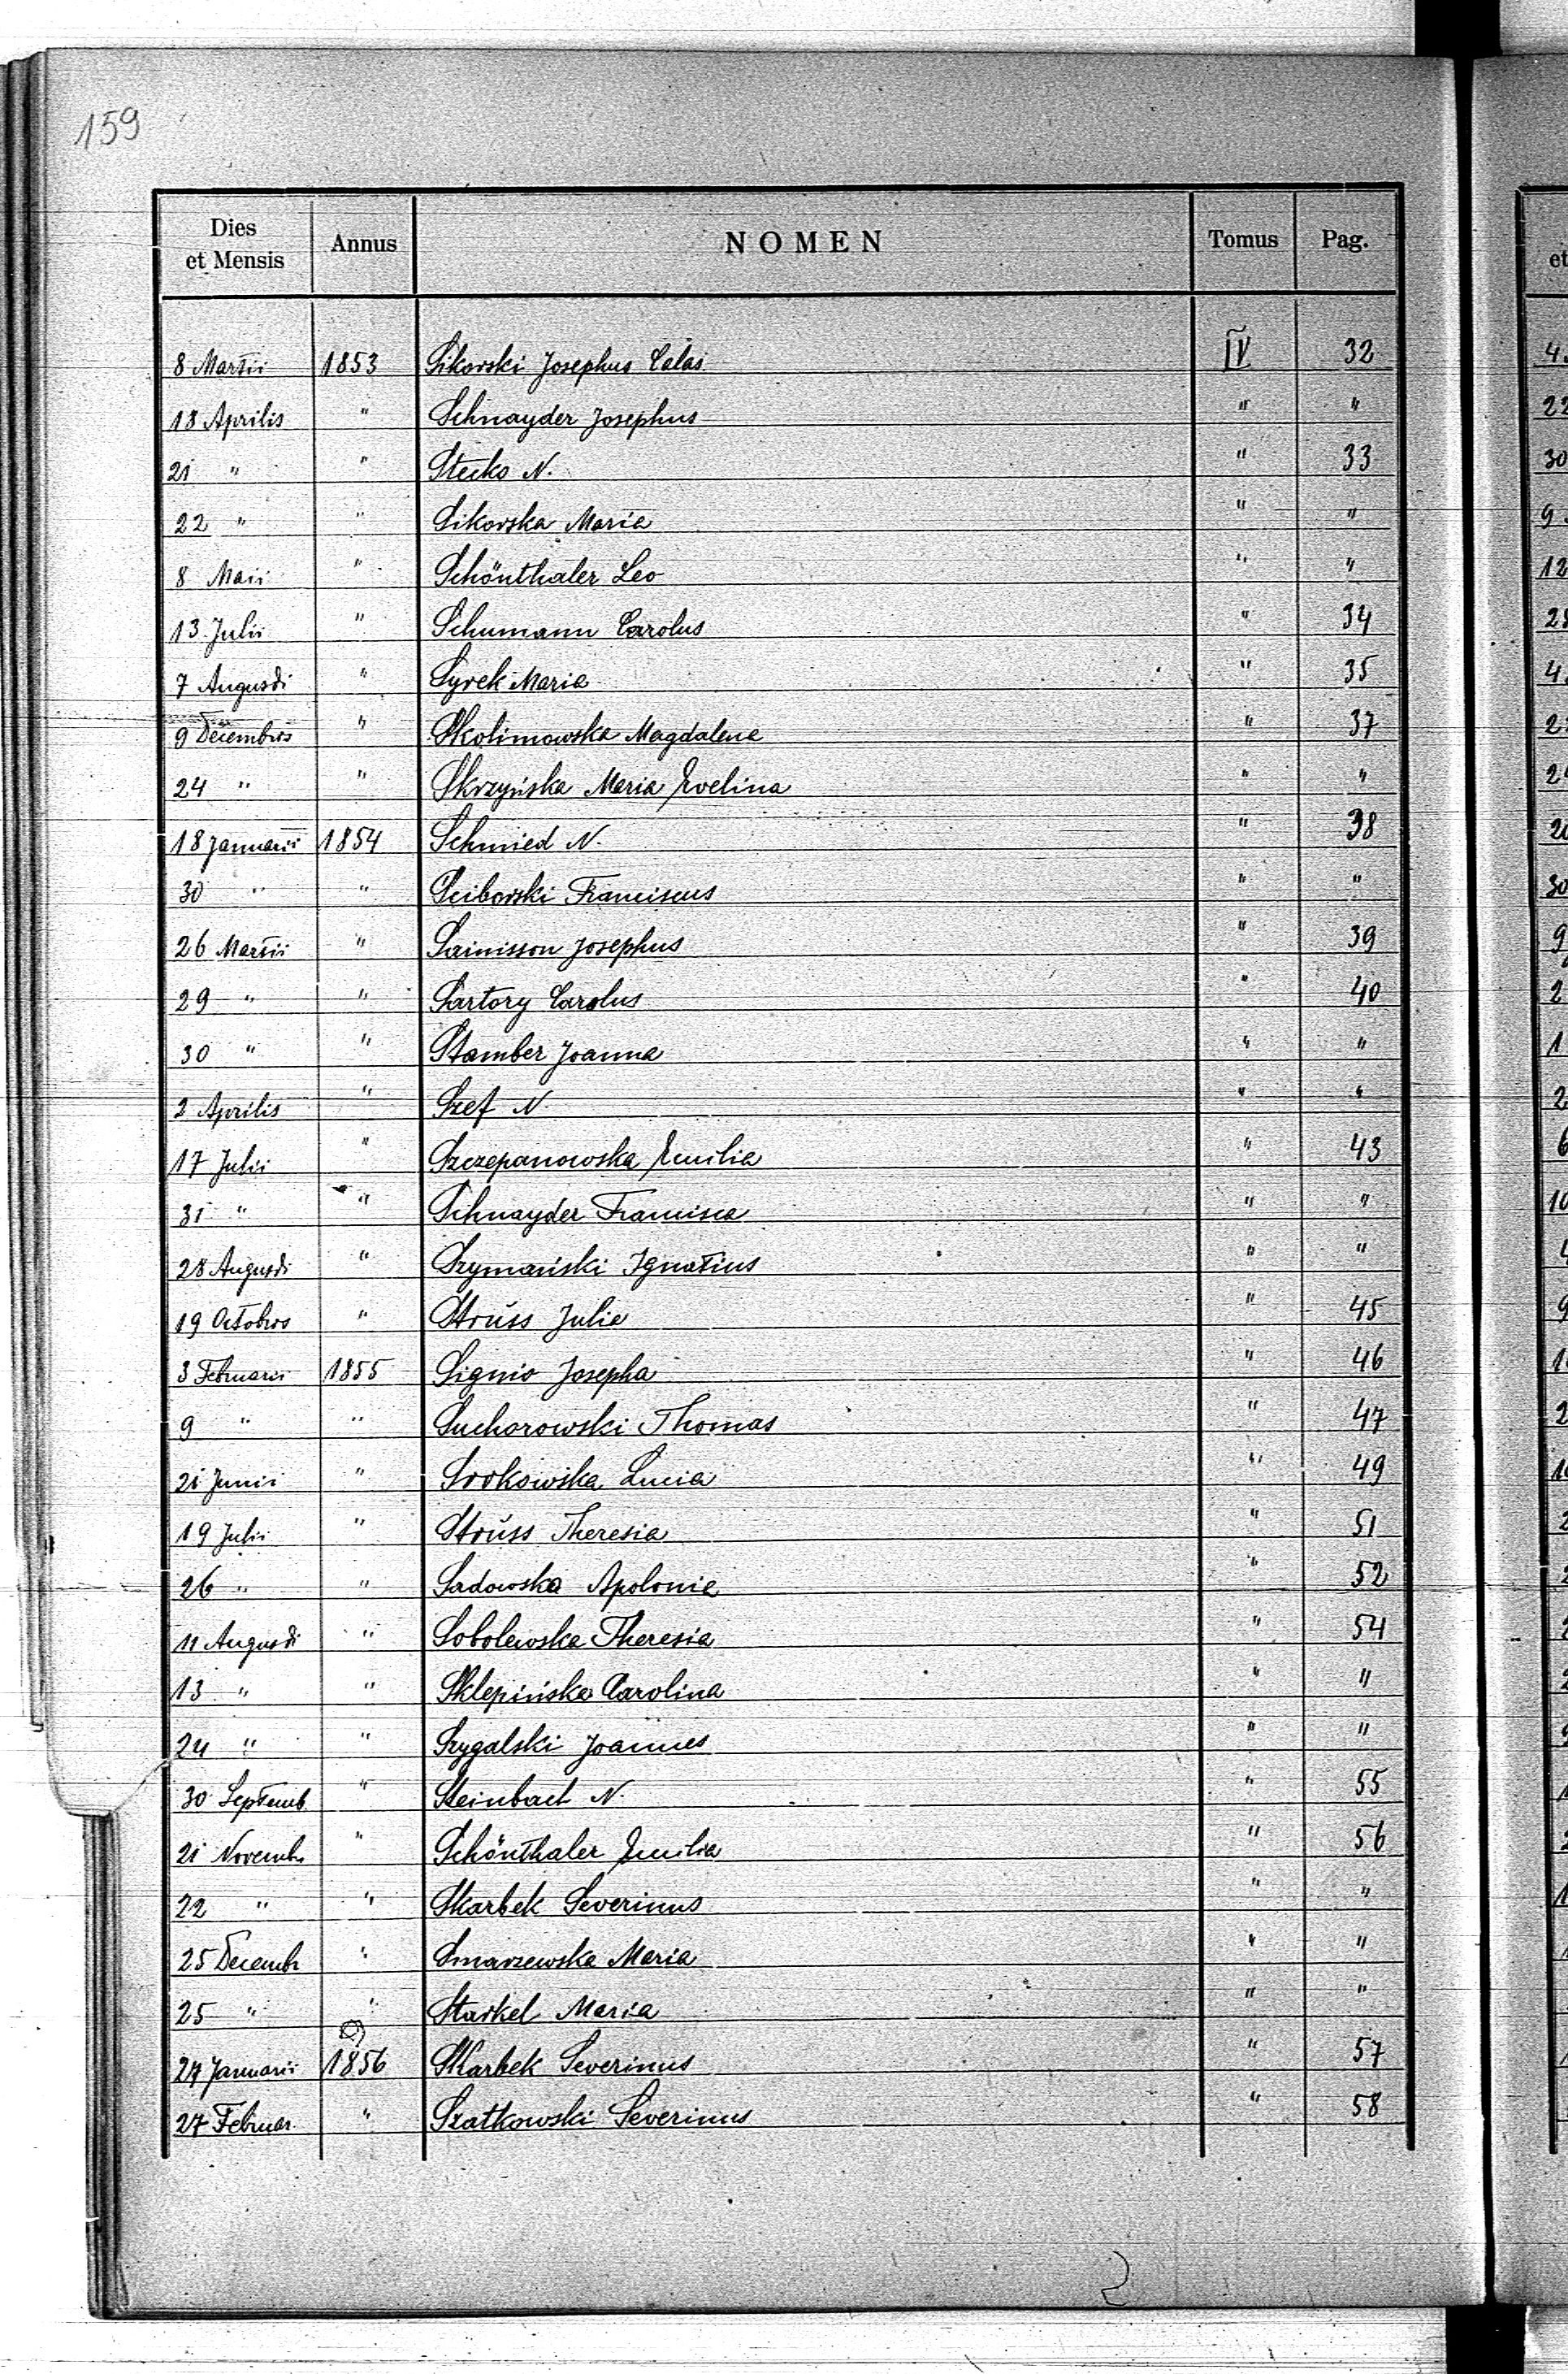 159
Dies et Mensis Annus NOMEN Tomus Pag.
8 Martii 1853 Sikorski Josephus Calas. IV 32
18 Aprilis " Schnayder Josephus " "
21 " " Stecko N. " 33
22 " " Sikorska Maria " "
8 Maii " Schönthaler Leo " "
13 Julii " Schumann Carolus " 34
7 Augusti " Syrek Maria " 35
9 Decembris " Skolimowska Magdalena " 37
24 " " Skrzyńska Maria Evelina " "
18 Januarii 1854 Schmied N. " 38
30 " " Sciborski Franciscus " "
26 Martii " Sainisson Josephus " 39
29 " " Sartory Carolus " 40
30 " " Stamber Joanna " "
2 Aprilis " Szef N. " "
17 Julii " Szczepanowska Emilia " 43
31 " " Schnayder Francisca " "
28 Augusti " Szymański Ignatius " "
19 Octobris " Strüss Julia " 45
3 Februarii 1855 Signio Josepha " 46
9 " " Suchorowski Thomas " 47
21 Junii " Srokowska Lucia " 49
19 Julii " Strüss Theresia " 51
26 " " Sadowska Apolonia " 52
11 Augusti " Sobolewska Theresia " 54
13 " " Sklepińska Carolina " "
24 " " Szygalski Joannes " "
30 Septemb. " Steinbach N. " 55
21 Novembr " Schönthaler Emilia " 56
22 " " Skarbek Severinus " "
25 Decembr " Smarzewska Maria " "
25 " " Starkel Maria " "
27 Januarii 1856 Skarbek Severinus " 57
27 Februar. " Szatkowski Severinus " 58